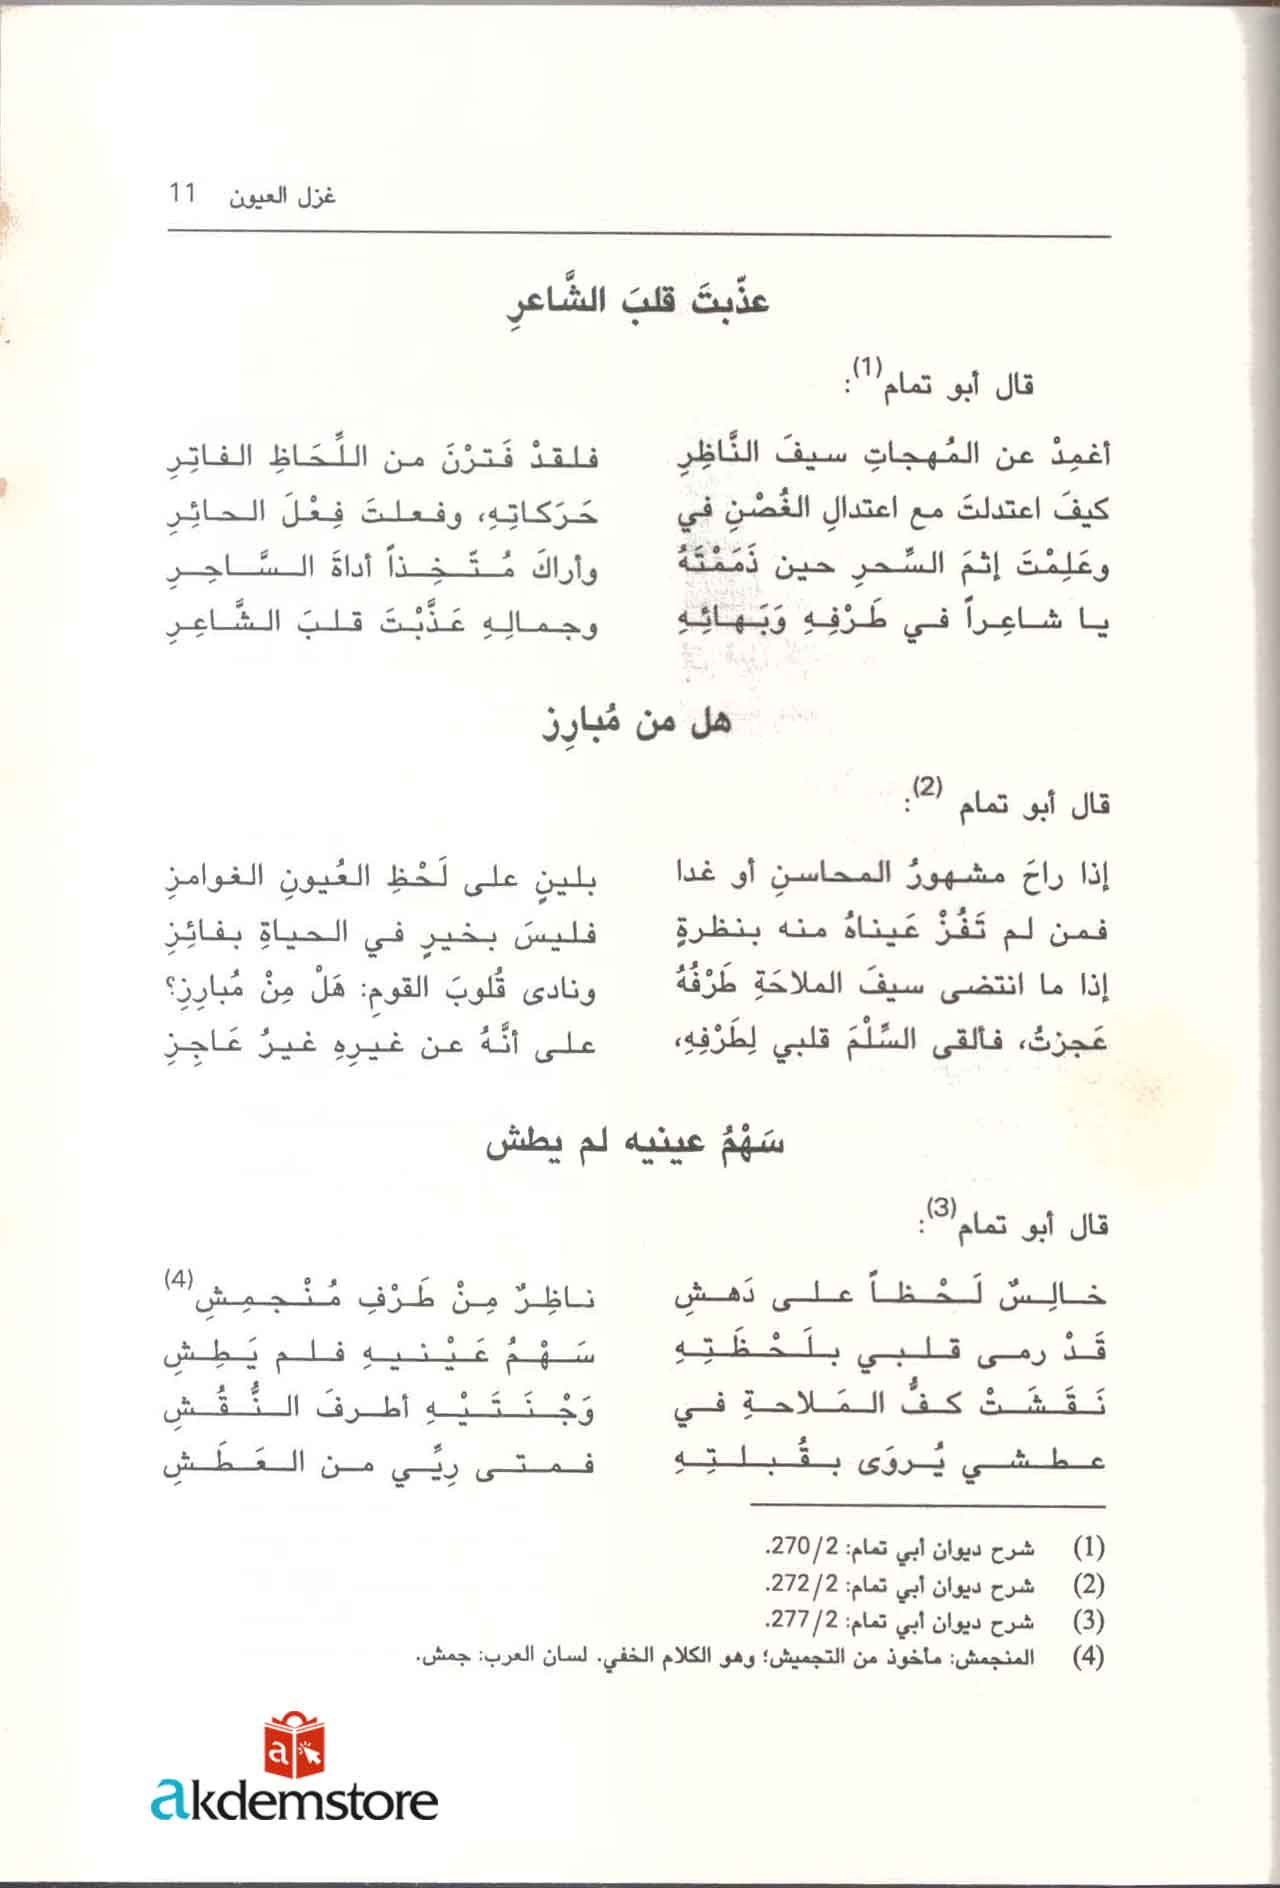 غزل العيون 11
عذّبتَ قلبَ الشَّاعرِ
قال أبو تمام(1):
أغمِدْ عن المُهجاتِ سيفَ النَّاظِرِ فلقدْ فَترْنَ من اللِّحَاظِ الفاتِرِ
كيفَ اعتدلتَ مع اعتدالِ الغُصْنِ في حَرَكاتِهِ، وفعلتَ فِعْلَ الحائِرِ
وعَلِمْتَ إثمَ السِّحرِ حين ذَمَمْتَهُ وأراكَ مُتّخِذاً أداةَ السَّاحِرِ
يا شاعِراً في طَرْفِهِ وَبَهائِهِ وجمالِهِ عَذَّبْتَ قلبَ الشَّاعِرِ
هل من مُبارِز
قال أبو تمام (2):
إذا راحَ مشهورُ المحاسنِ أو غدا بلينٍ على لَحْظِ العُيونِ الغوامزِ
فمن لم تَفُزْ عَيناهُ منه بنظرةٍ فليسَ بخيرٍ في الحياةِ بفائِزِ
إذا ما انتضى سيفَ الملاحَةِ طَرْفُهُ ونادى قُلوبَ القومِ: هَلْ مِنْ مُبارِزِ؟
عَجزتُ، فألقى السِّلْمَ قلبي لِطَرْفِهِ، على أنَّهُ عن غيرِهِ غيرُ عَاجِزِ
سَهْمُ عينيه لم يطش
قال أبو تمام(3):
خالِسٌ لَحْظاً على دَهشِ ناظِرٌ مِنْ طَرْفِ مُنْجمِشِ(4)
قَدْ رمى قلبي بلَحْظَتِهِ سَهْمُ عَيْنيهِ فلم يَطِشِ
نَقَشَتْ كفُّ المَلاحةِ في وَجْنَتَيْهِ أطرفَ النُّقُشِ
عطشي يُروَى بقُبلتِهِ فمتى رِيِّي من العَطَشِ
(1) شرح ديوان أبي تمام: 270/2.
(2) شرح ديوان أبي تمام: 272/2.
(3) شرح ديوان أبي تمام: 277/2.
(4) المنجمش: مأخوذ من التجميش؛ وهو الكلام الخفي. لسان العرب: جمش.
a
akdemstore